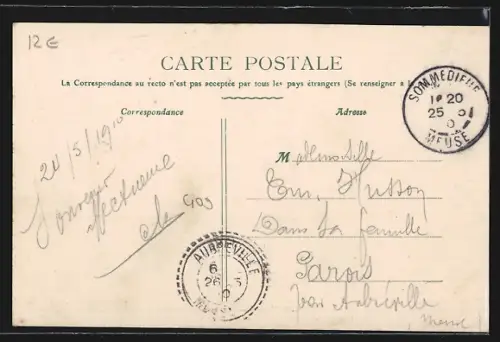 12 €
CARTE POSTALE
La Correspondance au recto n'est pas acceptée par tous les pays étrangers (Se renseigner à la
Correspondance
Adresse
SOMMEDIEUE
25
MEUSE
24/5/1910
Souvenir
affectueux
Mademoiselle
Em. Husson
Dans sa famille
Parois
par Aubréville
Meuse
AUBREVILLE
6
26 5
MEUSE